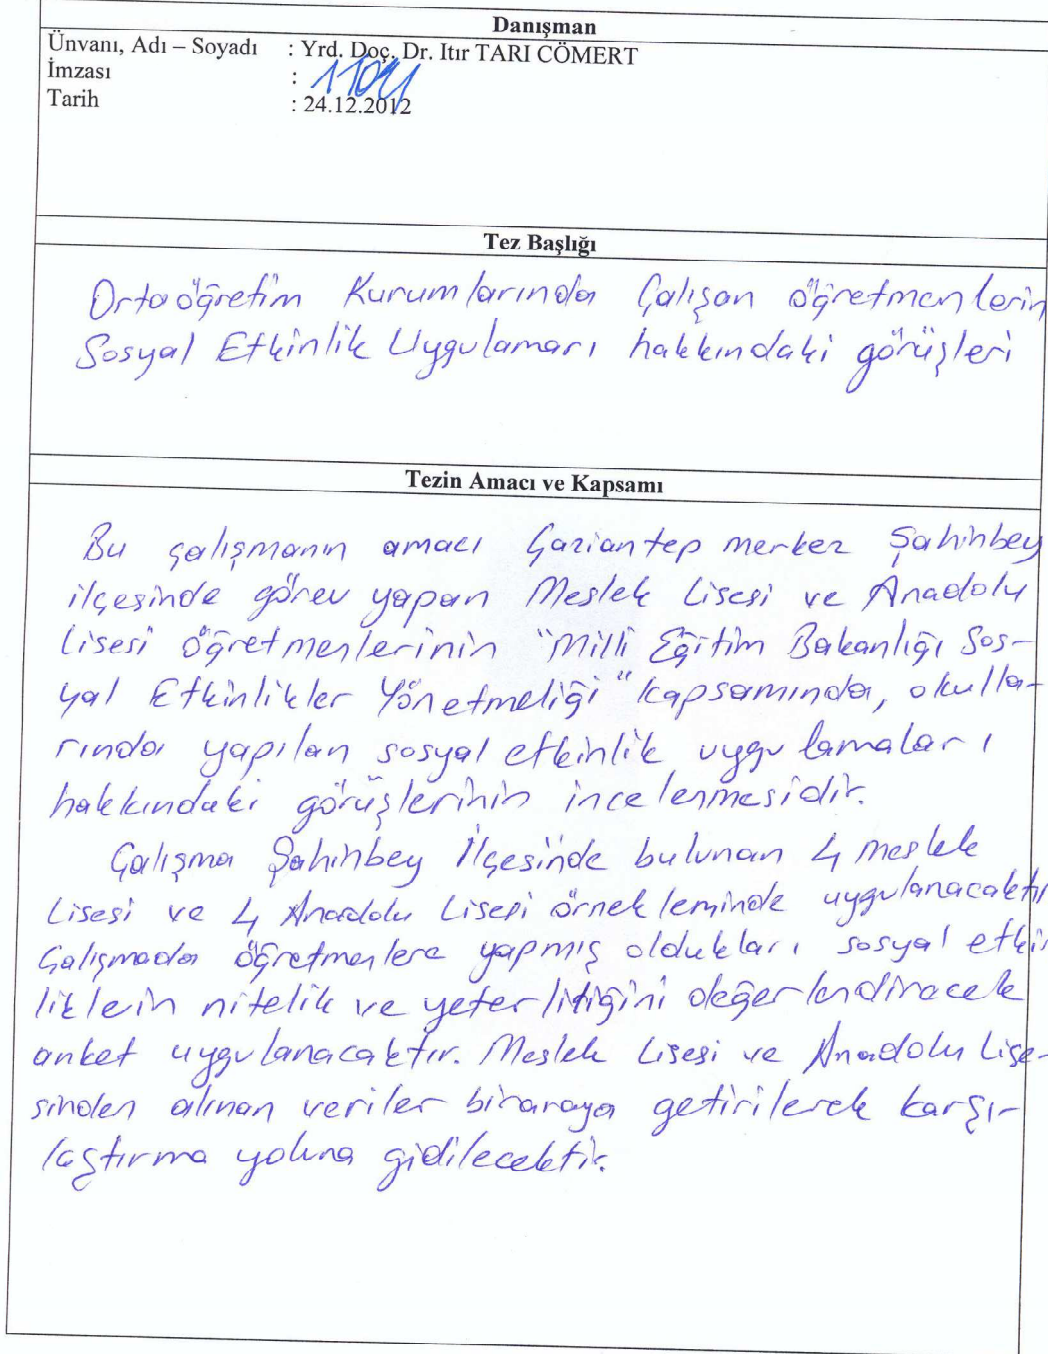 Danışman
Ünvanı, Adı – Soyadı : Yrd. Doç. Dr. Itır TARI CÖMERT
İmzası :
Tarih : 24.12.2012
Tez Başlığı
Ortaöğretim Kurumlarında Çalışan öğretmenlerin
Sosyal Etkinlik Uygulamarı hakkındaki görüşleri
Tezin Amacı ve Kapsamı
Bu çalışmanın amacı Gaziantep merkez Şahinbey
ilçesinde görev yapan Meslek Lisesi ve Anadolu
Lisesi öğretmenlerinin "Milli Eğitim Bakanlığı Sos-
yal Etkinlikler Yönetmeliği" kapsamında, okulla-
rında yapılan sosyal etkinlik uygulamaları
hakkındaki görüşlerinin incelenmesidir.
Çalışma Şahinbey İlçesinde bulunan 4 Meslek
Lisesi ve 4 Anadolu Lisesi örnekleminde uygulanacaktır
Çalışmada öğretmenlere yapmış oldukları sosyal etkin
liklein nitelik ve yeterlitiğini değerlendirecek
anket uygulanacaktır. Meslek Lisesi ve Anadolu Lise-
sinden alınan veriler biraraya getirilerek karşı-
laştırma yoluna gidilecektir.